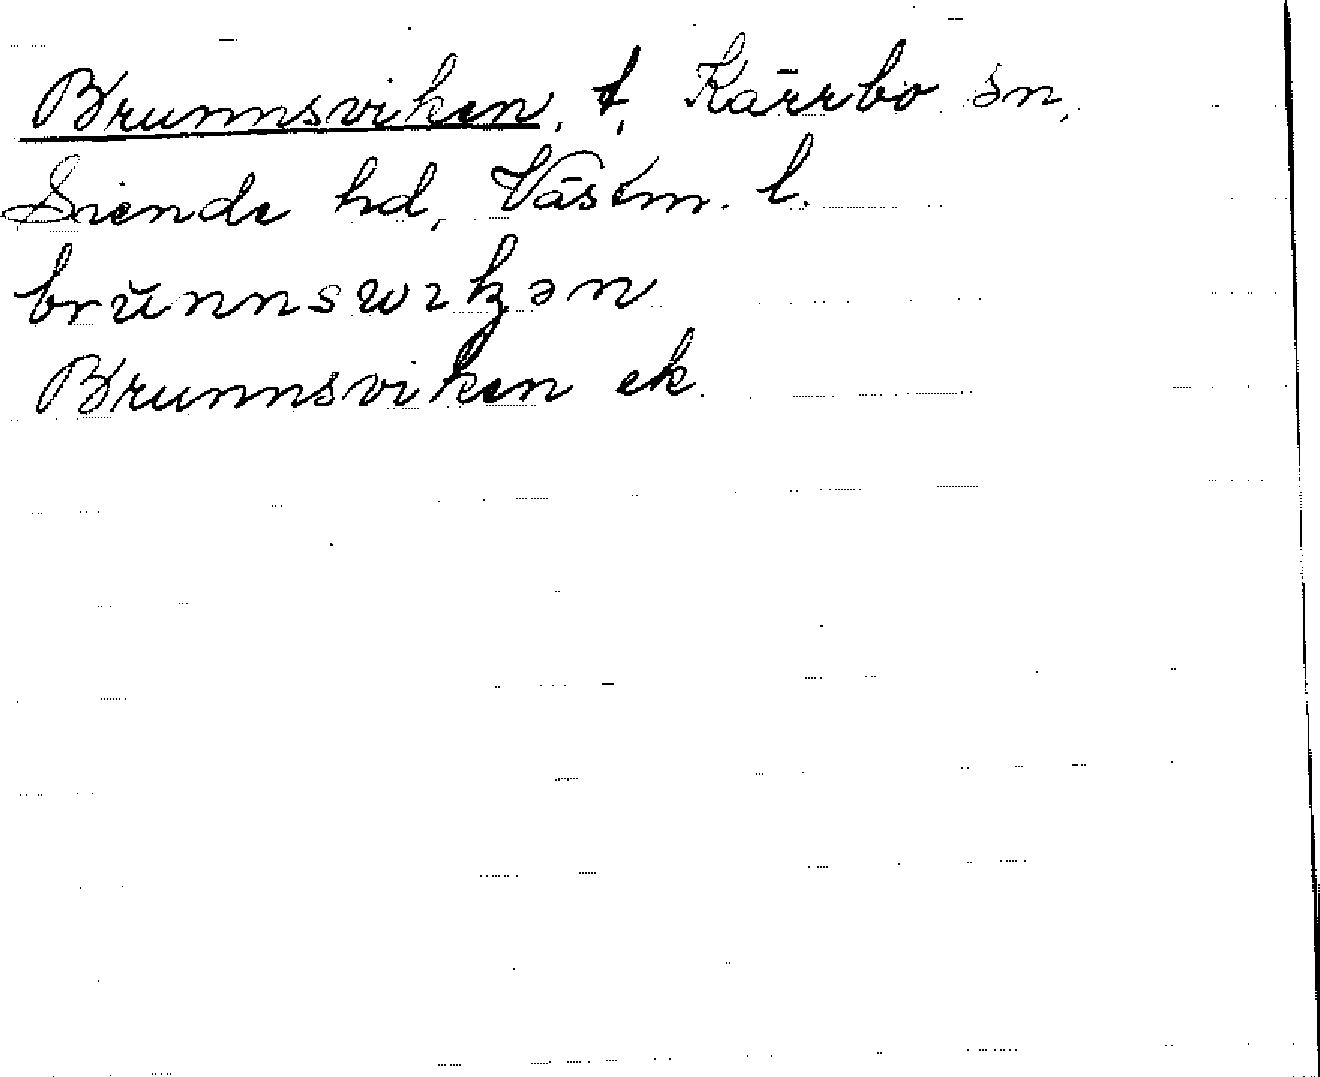 Brunnsviken, t, Kärrbo sn,
Siende hd, Västm. l.
Brunnsviken ek.